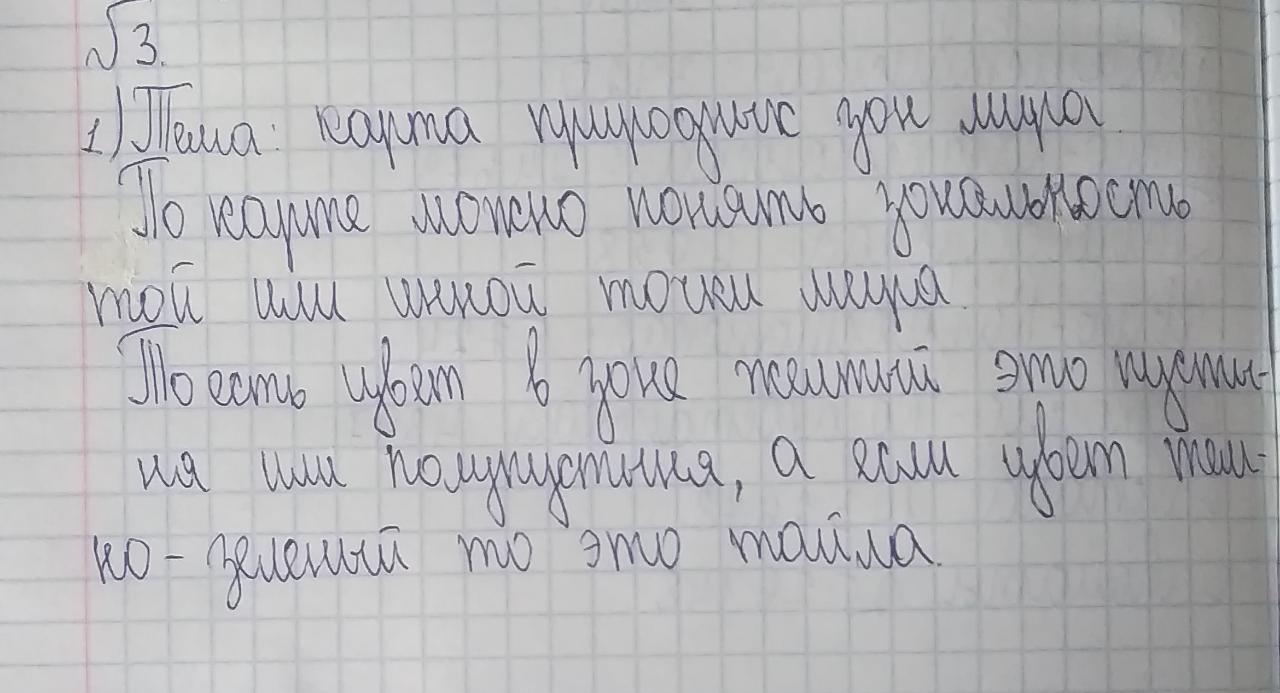 √3.
1) Тема: карта природных зон мира.
По карте можно понять зональность
той или инной точки мира.
То есть цвет в зоне желтый это пусты-
ня или полупустыня, а если цвет тем-
но-зеленый то это тайла.